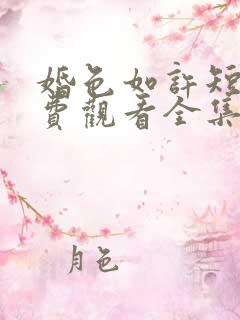 婚色如許短
費觀看全集
月色